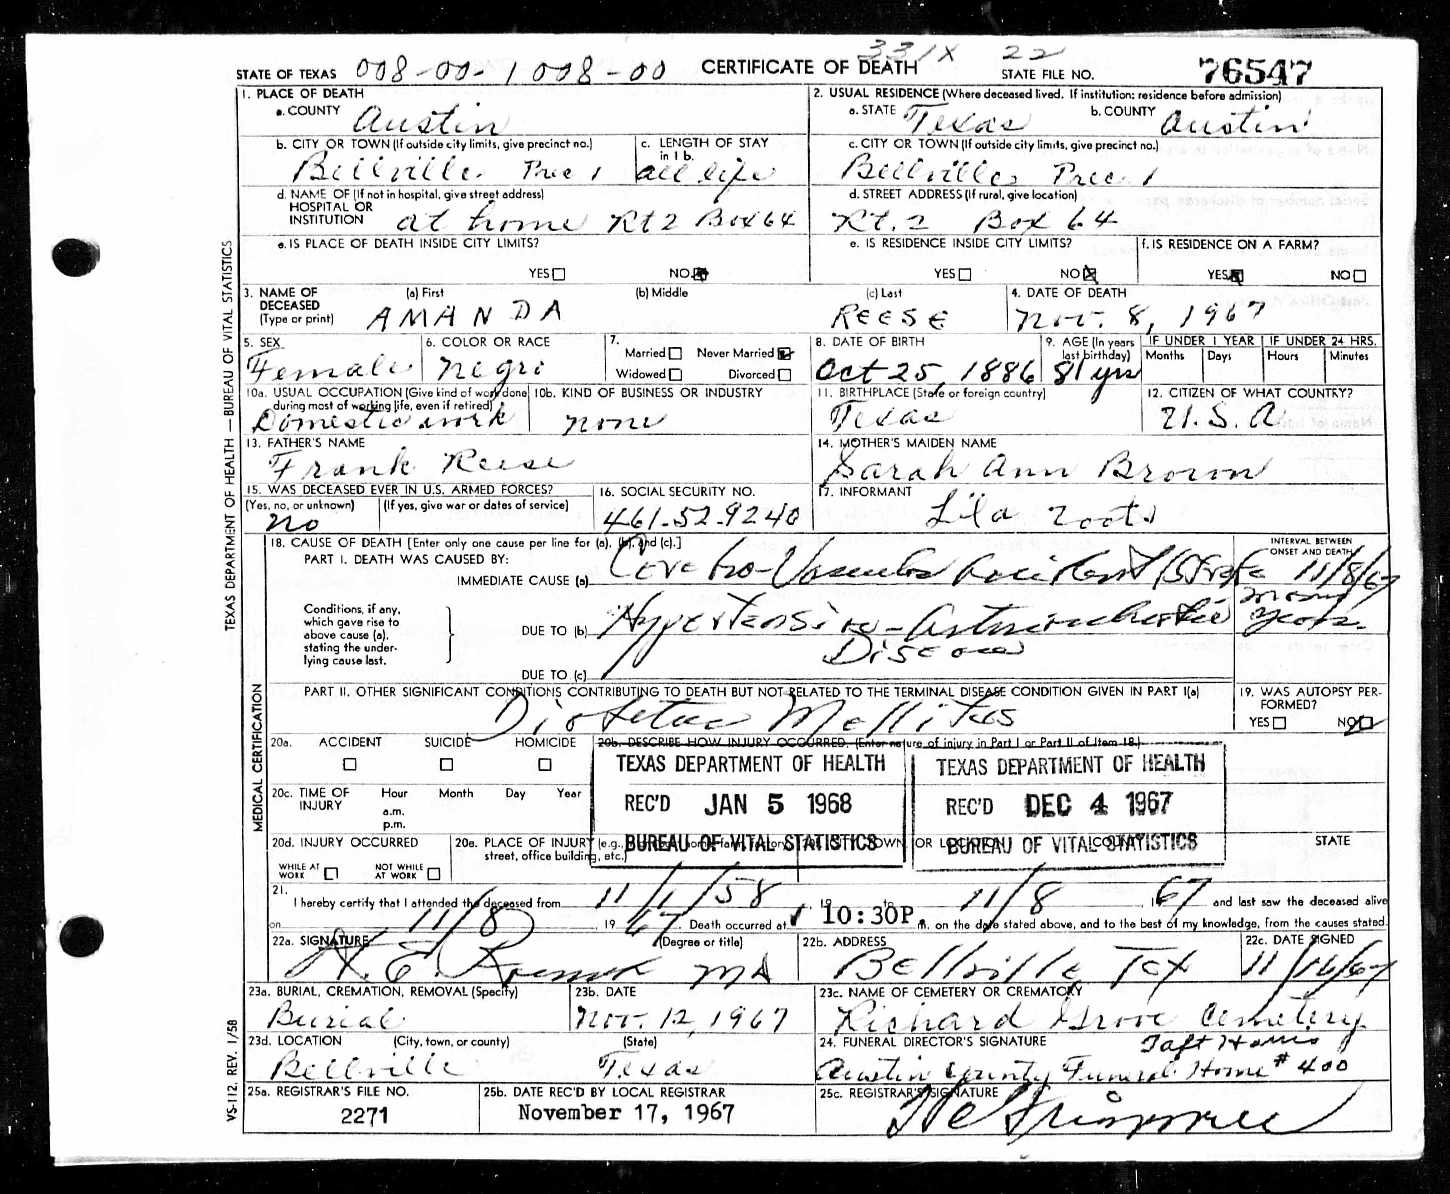 331X 22
STATE OF TEXAS 008-00-1 008-00 CERTIFICATE OF DEATH STATE FILE NO. 76547
1. PLACE OF DEATH 2. USUAL RESIDENCE (Where deceased lived. If institution: residence before admission)
a. COUNTY Austin a. STATE Texas b. COUNTY Austin
b. CITY OR TOWN (If outside city limits, give precinct no.) c. LENGTH OF STAY in 1 b. c. CITY OR TOWN (If outside city limits, give precinct no.)
Bellville Prec 1 all life Bellville, Prec. 1
d. NAME OF (If not in hospital, give street address) d. STREET ADDRESS (If rural, give location)
HOSPITAL OR INSTITUTION at home Rt 2 Box 64 Rt. 2 Box 64
e. IS PLACE OF DEATH INSIDE CITY LIMITS? e. IS RESIDENCE INSIDE CITY LIMITS? f. IS RESIDENCE ON A FARM?
YES NO YES NO YES NO
3. NAME OF DECEASED (Type or print) (a) First (b) Middle (c) Last 4. DATE OF DEATH
AMANDA REESE Nov. 8, 1967
5. SEX 6. COLOR OR RACE 7. Married Never Married Widowed Divorced 8. DATE OF BIRTH 9. AGE (In years last birthday) IF UNDER 1 YEAR IF UNDER 24 HRS.
Months Days Hours Minutes
Female Negro Oct 25, 1886 81 yrs
10a. USUAL OCCUPATION (Give kind of work done during most of working life, even if retired) 10b. KIND OF BUSINESS OR INDUSTRY 11. BIRTHPLACE (State or foreign country) 12. CITIZEN OF WHAT COUNTRY?
Domestic work none Texas U.S.A
13. FATHER'S NAME 14. MOTHER'S MAIDEN NAME
Frank Reese Sarah Ann Brown
15. WAS DECEASED EVER IN U.S. ARMED FORCES? 16. SOCIAL SECURITY NO. 17. INFORMANT
(Yes, no, or unknown) (If yes, give war or dates of service)
no 461-52-9240 Lila
18. CAUSE OF DEATH [Enter only one cause per line for (a), (b), and (c).] INTERVAL BETWEEN ONSET AND DEATH
PART I. DEATH WAS CAUSED BY:
IMMEDIATE CAUSE (a) Cerebro-Vascular Accident (Stroke 11/8/67
Conditions, if any, which gave rise to above cause (a), stating the underlying cause last.
DUE TO (b) Hypertensive-Arteriosclerotic Many Years
Disease
DUE TO (c)
PART II. OTHER SIGNIFICANT CONDITIONS CONTRIBUTING TO DEATH BUT NOT RELATED TO THE TERMINAL DISEASE CONDITION GIVEN IN PART I(a) 19. WAS AUTOPSY PERFORMED?
Diabetes Mellitus YES NO
20a. ACCIDENT SUICIDE HOMICIDE 20b. DESCRIBE HOW INJURY OCCURRED. (Enter nature of injury in Part I or Part II of Item 18.)
TEXAS DEPARTMENT OF HEALTH
REC'D JAN 5 1968
BUREAU OF VITAL STATISTICS
TEXAS DEPARTMENT OF HEALTH
REC'D DEC 4 1967
BUREAU OF VITAL STATISTICS
20c. TIME OF INJURY Hour a.m. p.m. Month Day Year
20d. INJURY OCCURRED WHILE AT WORK NOT WHILE AT WORK
20e. PLACE OF INJURY (e.g., street, office building, etc.) TOWN, OR COUNTY STATE
21. I hereby certify that I attended the deceased from 11/1/58, 19 to 11/8, 1967 and last saw the deceased alive
on 11/8 1967. Death occurred at 10:30P. m. on the date stated above, and to the best of my knowledge, from the causes stated.
22a. SIGNATURE (Degree or title) 22b. ADDRESS 22c. DATE SIGNED
H. E. MD Bellville, Tex 11/16/67
23a. BURIAL, CREMATION, REMOVAL (Specify) 23b. DATE 23c. NAME OF CEMETERY OR CREMATORY
Burial Nov. 12, 1967 Richard Grove Cemetery
23d. LOCATION (City, town, or county) (State) 24. FUNERAL DIRECTOR'S SIGNATURE Taft Harris
Bellville Texas Austin County Funeral Home #400
25a. REGISTRAR'S FILE NO. 25b. DATE REC'D BY LOCAL REGISTRAR 25c. REGISTRAR'S SIGNATURE
2271 November 17, 1967
TEXAS DEPARTMENT OF HEALTH — BUREAU OF VITAL STATISTICS
MEDICAL CERTIFICATION
VS-112, REV. 1/58